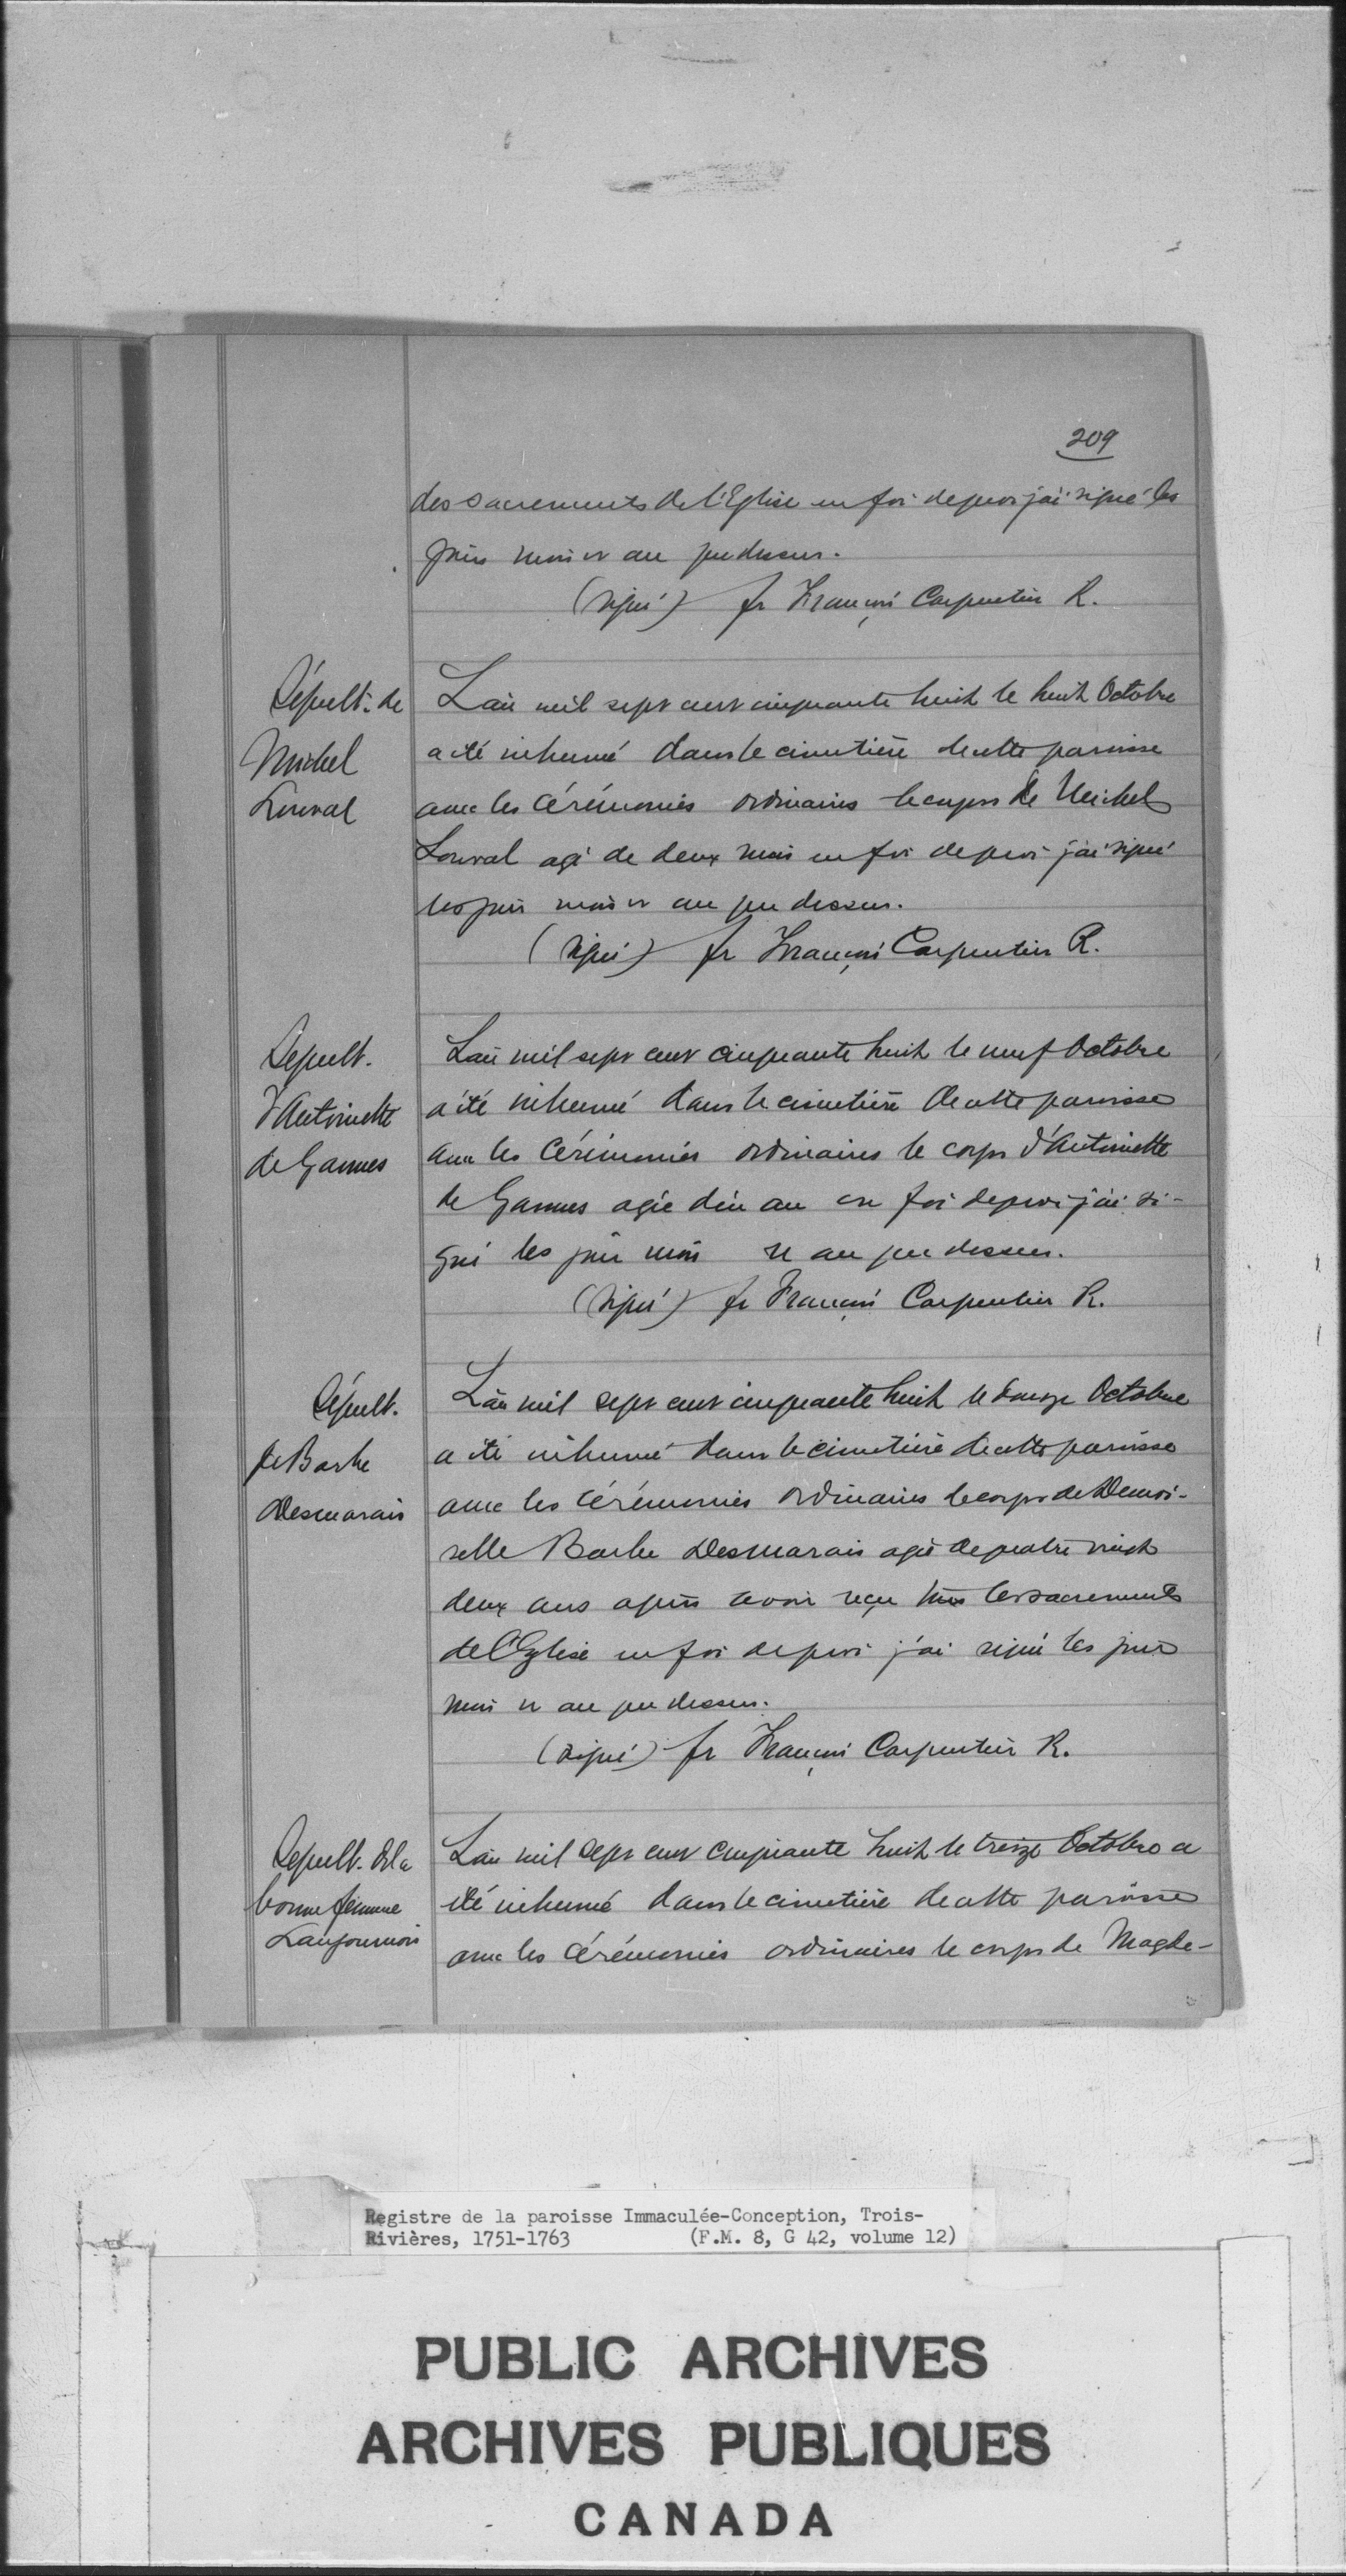 209
des sacrements de l'Eglise en foi de quoi j'ai signé les
jour mois et an que dessus.
(signé) fr François Carpentier R.
Sépult. de
Michel
Louval
L'an mil sept cent cinquante huit le huit Octobre
a été inhumé dans le cimetière de cette paroisse
avec les cérémonies ordinaires le corps de Michel
Louval agé de deux mois en foi de quoi j'ai signé
les jour mois et an que dessus.
(signé) fr François Carpentier R.
Sepult.
d'Antoinette
de Gannes
L'an mil sept cent cinquante huit le neuf Octobre
a été inhumé dans le cimetière de cette paroisse
avec les cérémonies ordinaires le corps d'Antoinette
de Gannes agée d'un an en foi de quoi j'ai si-
gné les jour mois et an que dessus.
(signé) fr François Carpentier R.
Sépult.
de Barbe
Desmarais
L'an mil sept cent cinquante huit le douze Octobre
a été inhumé dans le cimetière de cette paroisse
avec les cérémonies ordinaires le corps de Demoi-
selle Barbe Desmarais agée de quatre vingt
deux ans après avoir reçu tous les sacrements
de l'Eglise en foi de quoi j'ai signé les jour
mois et an que dessus.
(signé) fr François Carpentier R.
Sepult. de la
bonne femme
L'an mil sept cent cinquante huit le treize Octobre a
été inhumé dans le cimetière de cette paroisse
avec les cérémonies ordinaires le corps de Magde-
Registre de la paroisse Immaculée-Conception, Trois-
Rivières, 1751-1763 (F.M. 8, G 42, volume 12)
PUBLIC ARCHIVES
ARCHIVES PUBLIQUES
CANADA